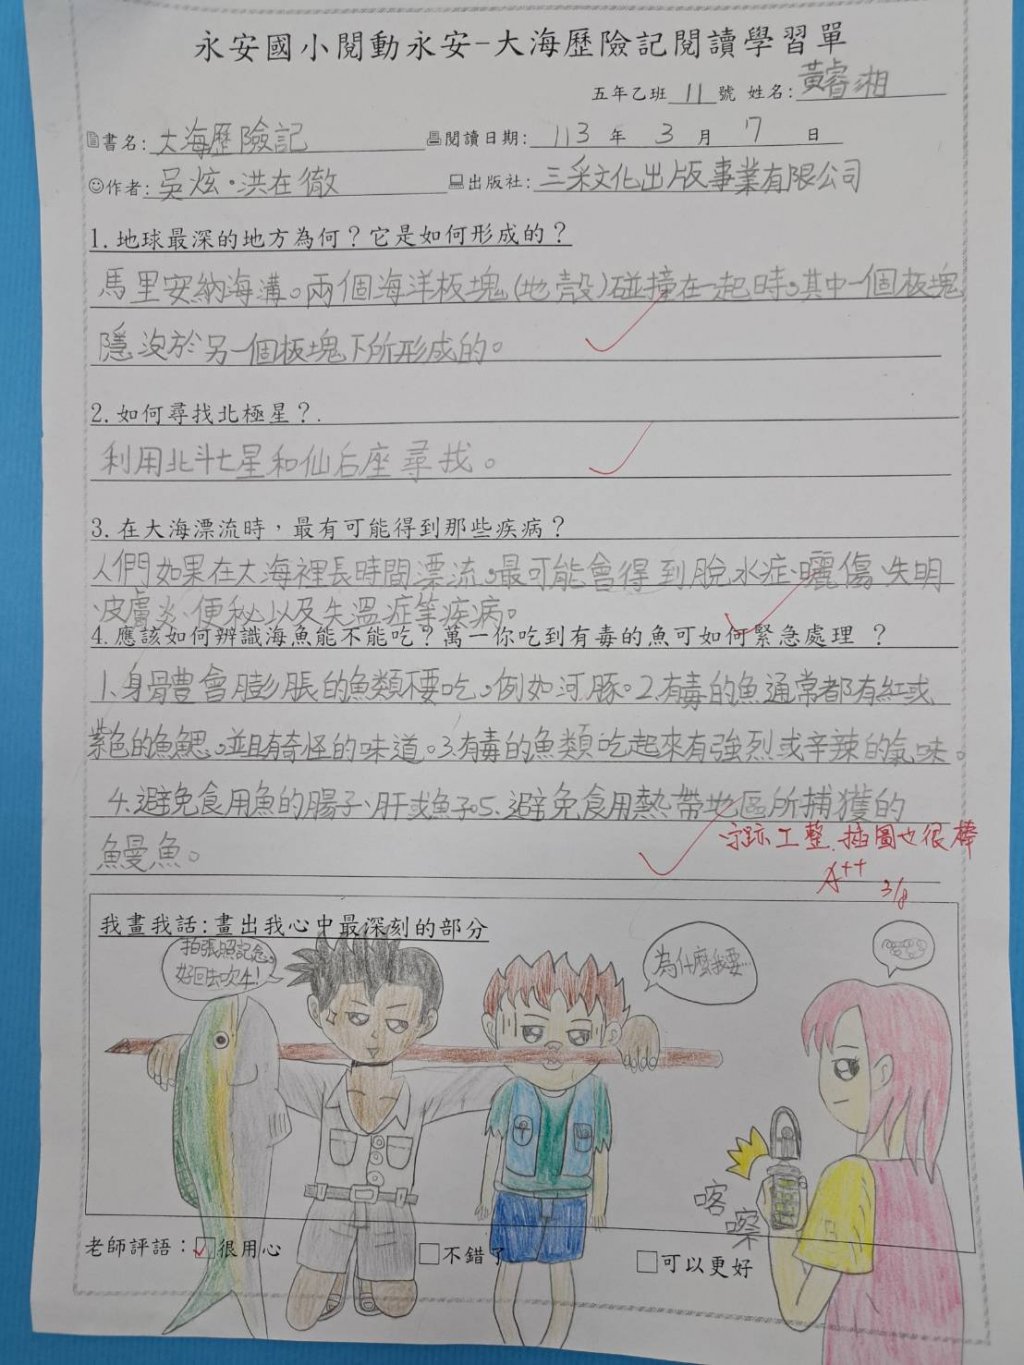 永安國小閱動永安-大海歷險記閱讀學習單
五年乙班 11 號 姓名:黃睿湘
書名: 大海歷險記 閱讀日期: 113 年 3 月 7 日
作者: 吳炫·洪在徹 出版社: 三采文化出版事業有限公司
1.地球最深的地方為何？它是如何形成的？
馬里安納海溝。兩個海洋板塊(地殼)碰撞在一起時。其中一個板塊
隱沒於另一個板塊下所形成的。
2.如何尋找北極星？.
利用北斗七星和仙后座尋找。
3.在大海漂流時，最有可能得到那些疾病？
人們如果在大海裡長時間漂流。最可能會得到脫水症、曬傷、失明
、皮膚炎、便秘以及失溫症等疾病。
4.應該如何辨識海魚能不能吃？萬一你吃到有毒的魚可如何緊急處理 ？
1.身體會膨脹的魚類不要吃。例如河豚。2.有毒的魚通常都有紅或
紫色的魚鰓。並且有奇怪的味道。3.有毒的魚類吃起來有強烈或辛辣的氣味。
4.避免食用魚的腸子、肝或魚子。5.避免食用熱帶地區所捕獲的
鰻魚。
字跡工整.插圖也很棒
A++
3/8
我畫我話:畫出我心中最深刻的部分
拍張照記念。
好回去吹牛!
為什麼我要...
喀嚓
老師評語：很用心 不錯了 可以更好